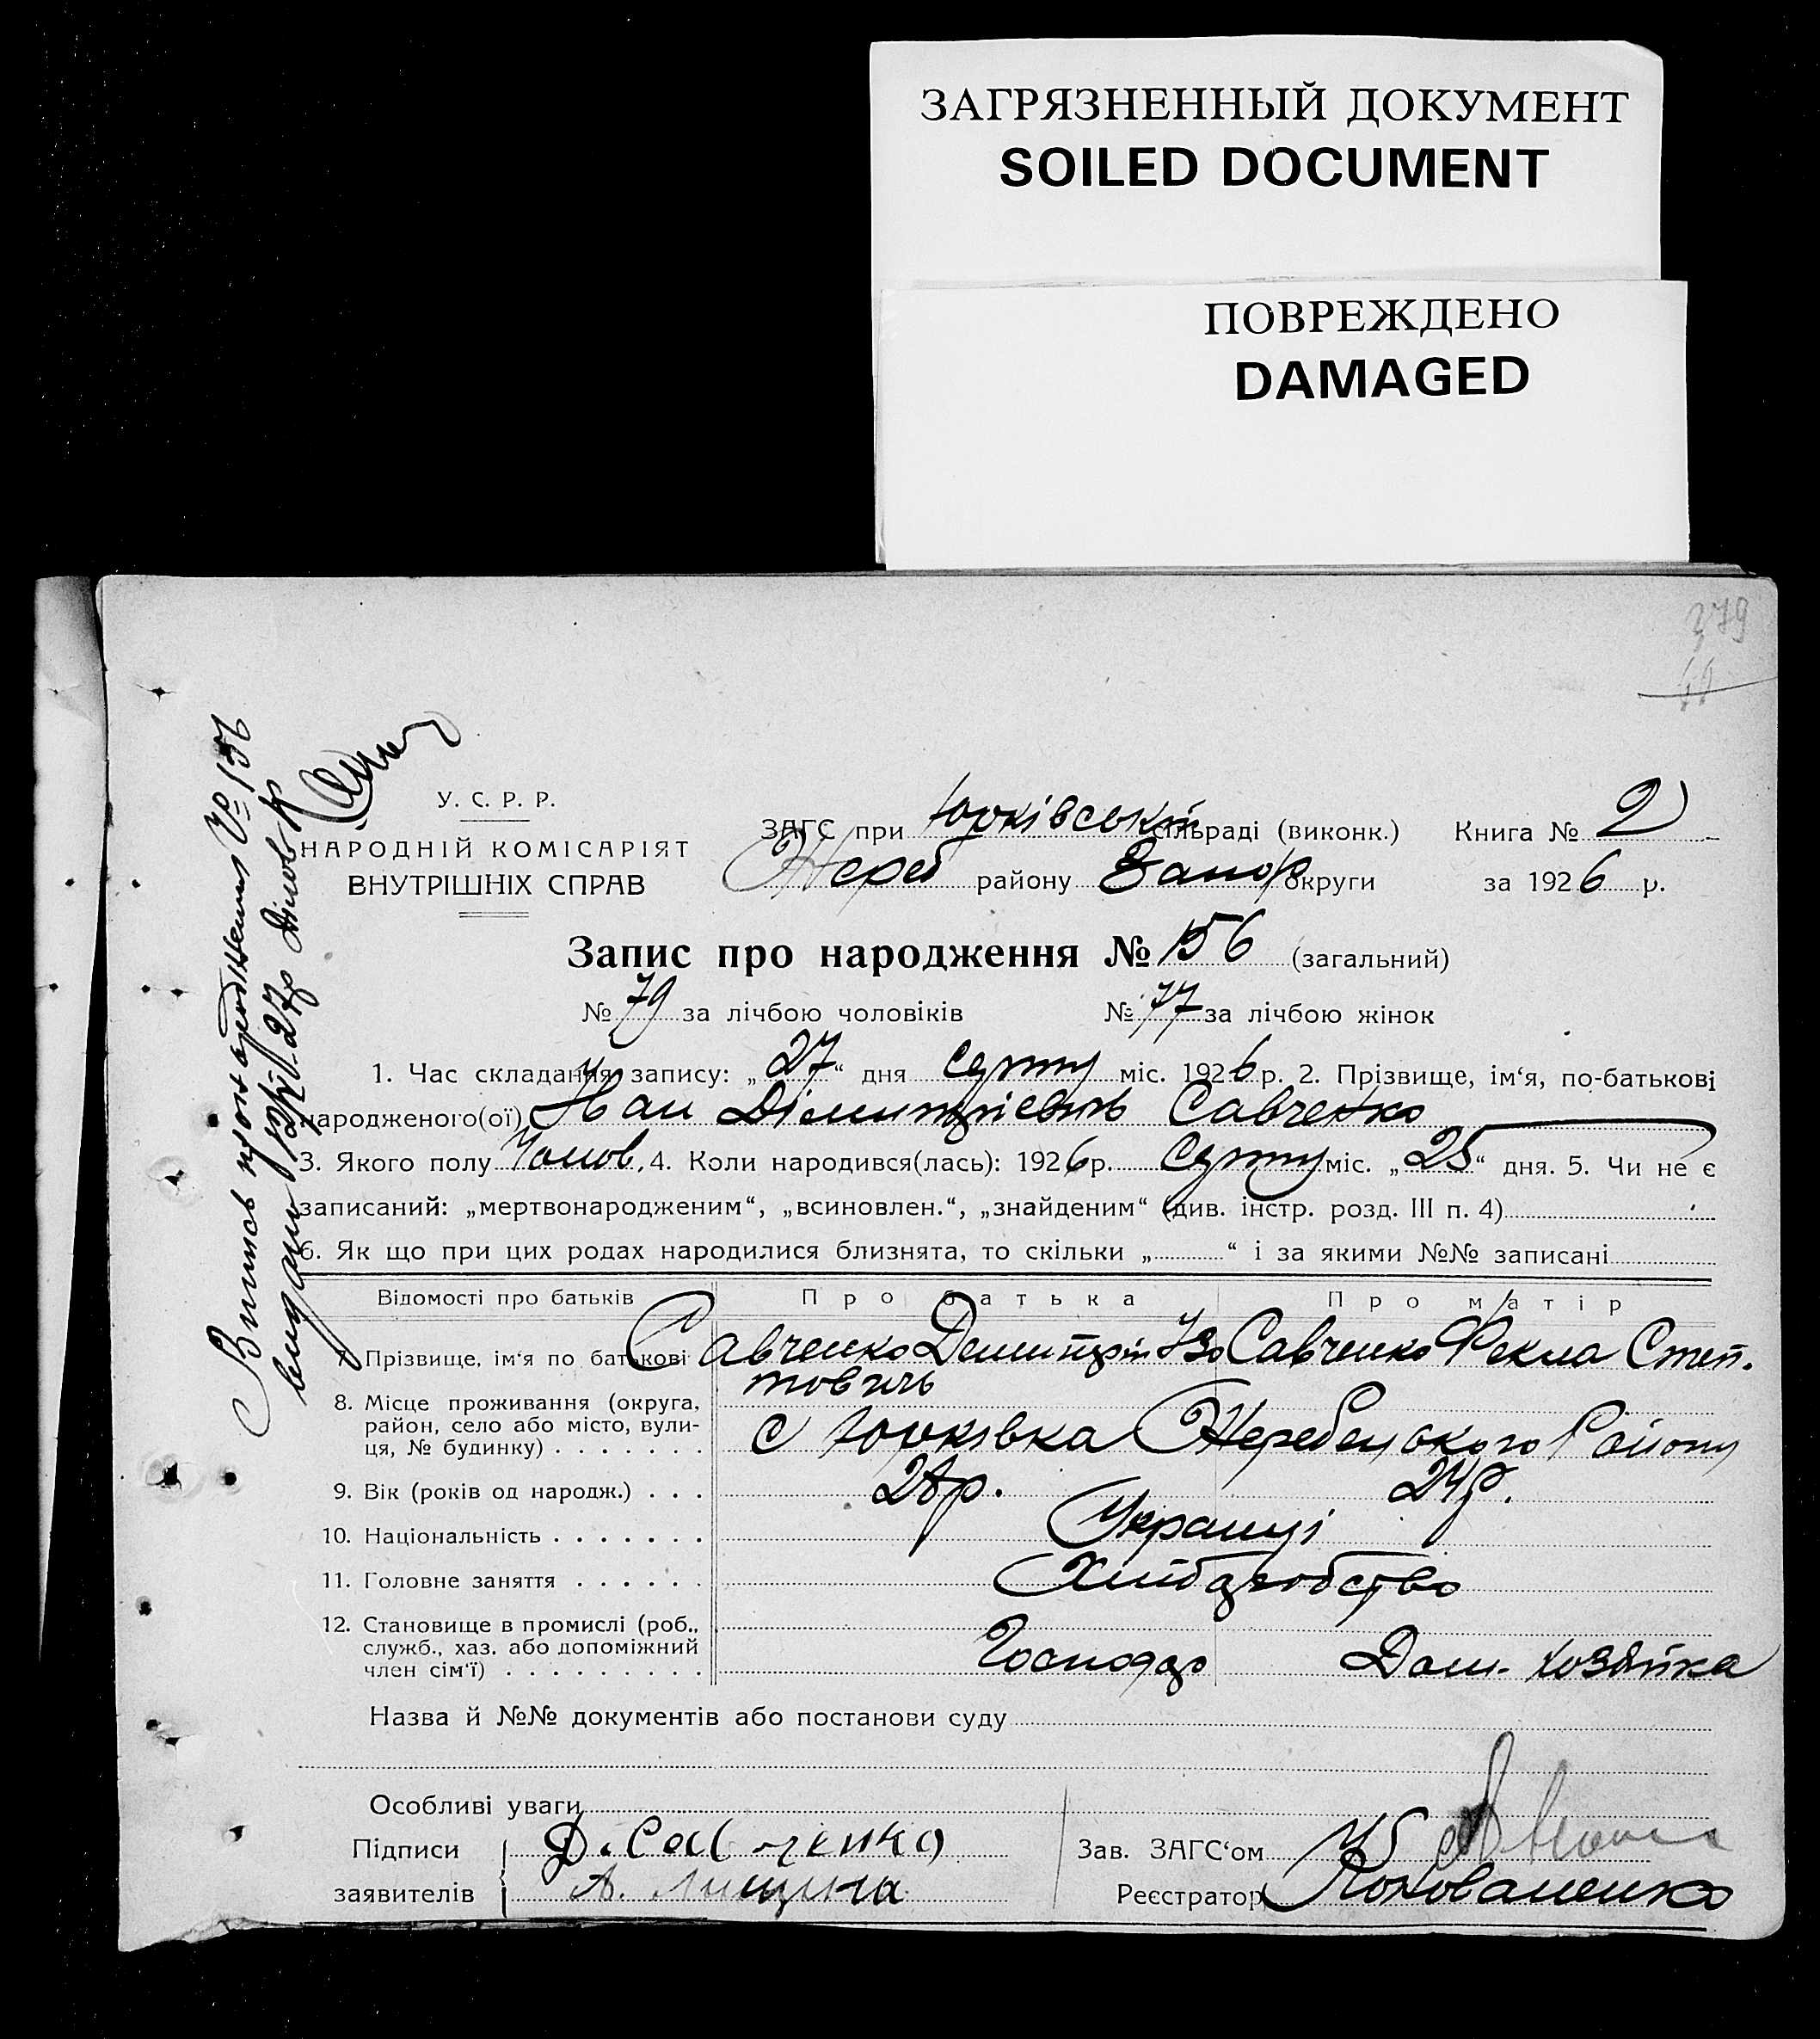 ЗАГРЯЗНЕННЫЙ ДОКУМЕНТ
SOILED DOCUMENT
ПОВРЕЖДЕНО
DAMAGED
379
У. С. Р. Р.
НАРОДНІЙ КОМІСАРІЯТ
ВНУТРІШНІХ СПРАВ
ЗАГС при Юрківській сільраді (виконк.) Книга № 2
Жереб району Запор округи за 1926 р.
Запис про народження № 156 (загальний)
№ 79 за лічбою чоловіків № 77 за лічбою жінок
1. Час складання запису: „27“ дня серпня міс. 1926 р. 2. Прізвище, ім‘я, по-батькові
народженого(ої) Іван Дімитрієвичь Савченко
3. Якого полу Чолов, 4. Коли народився(лась): 1926 р. Серпня міс. „25“ дня. 5. Чи не є
записаний: „мертвонародженим“, „всиновлен.“, „знайденим“ (див. інстр. розд. III п. 4)
6. Як що при цих родах народилися близнята, то скільки „ “ і за якими №№ записані
Відомості про батьків Про батька Про матір
7. Прізвище, ім‘я по батькові Савченко Демитрій Савченко Фекла Степ.
8. Місце проживання (округа, район, село або місто, вулиця, № будинку) с Юрківка Жеребецького Району
9. Вік (років од народж.) 28р. 24р.
10. Національність Українці
11. Головне заняття Хліборобство
12. Становище в промислі (роб., служб., хаз. або допоміжний член сім‘ї) Господар Дом. хозяйка
Назва й №№ документів або постанови суду
Особливі уваги
Підписи Д. Савченко Зав. ЗАГС‘ом
заявителів А. Реєстратор Коноваленко
Випись про народження № 156
видано